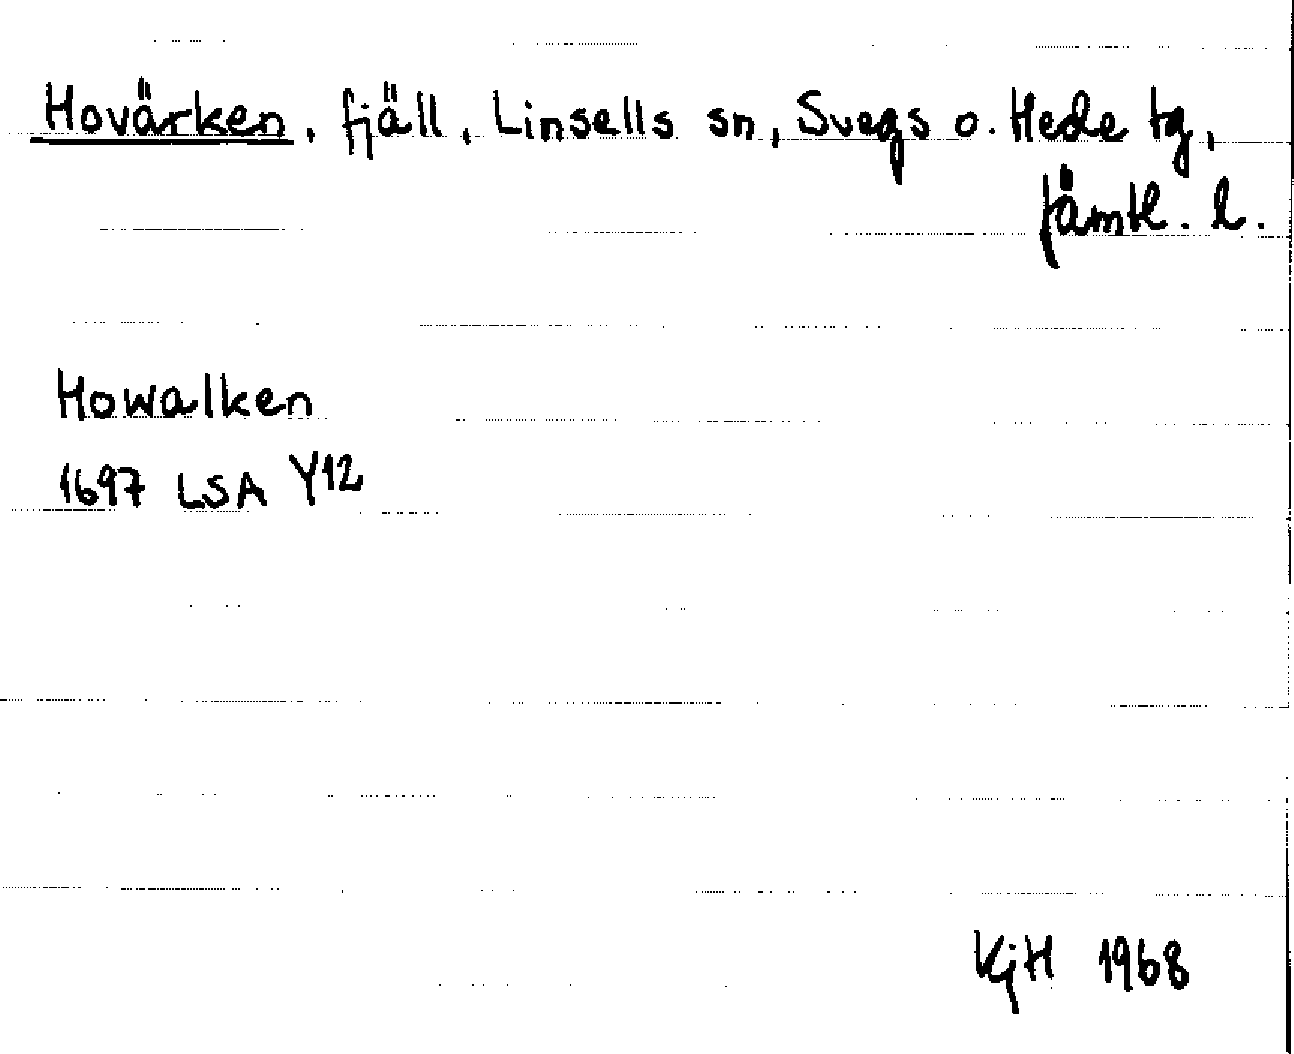 Hovärken, fjäll, Linsells sn, Svegs o. Hede tg,
Jämtl. l.
Howalken
1697 LSA Y12
KGH 1968